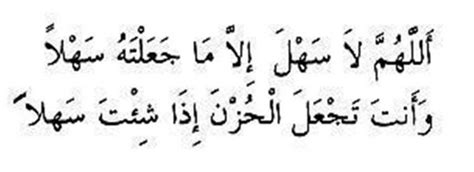 أَللَّهُمَّ لاَ سَهْلَ إِلاَّ مَا جَعَلْتَهُ سَهْلاً
وَأَنتَ تَجْعَلَ الْحُزْنَ إِذَا شِئْتَ سَهلاً